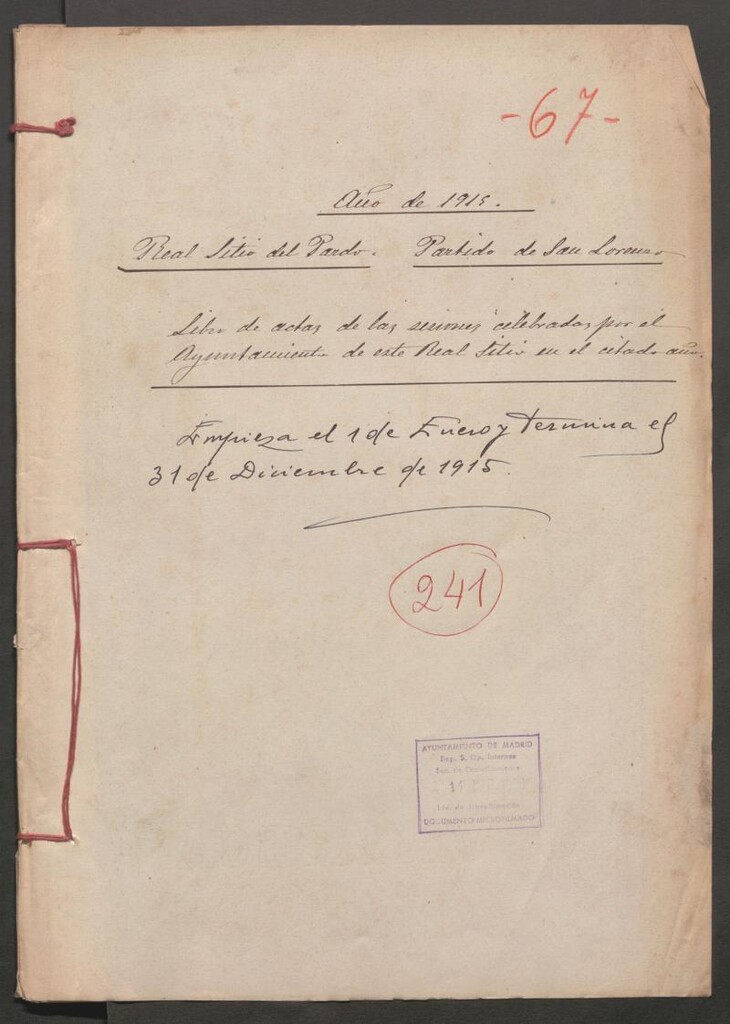 -67-
Año de 1915.
Real Sitio del Pardo. Partido de San Lorenzo
Libro de actas de las sesiones celebradas por el
Ayuntamiento de este Real Sitio en el citado año.
Empieza el 1 de Enero y Termina el
31 de Diciembre de 1915.
241
AYUNTAMIENTO DE MADRID
DOCUMENTO MICROFILMADO